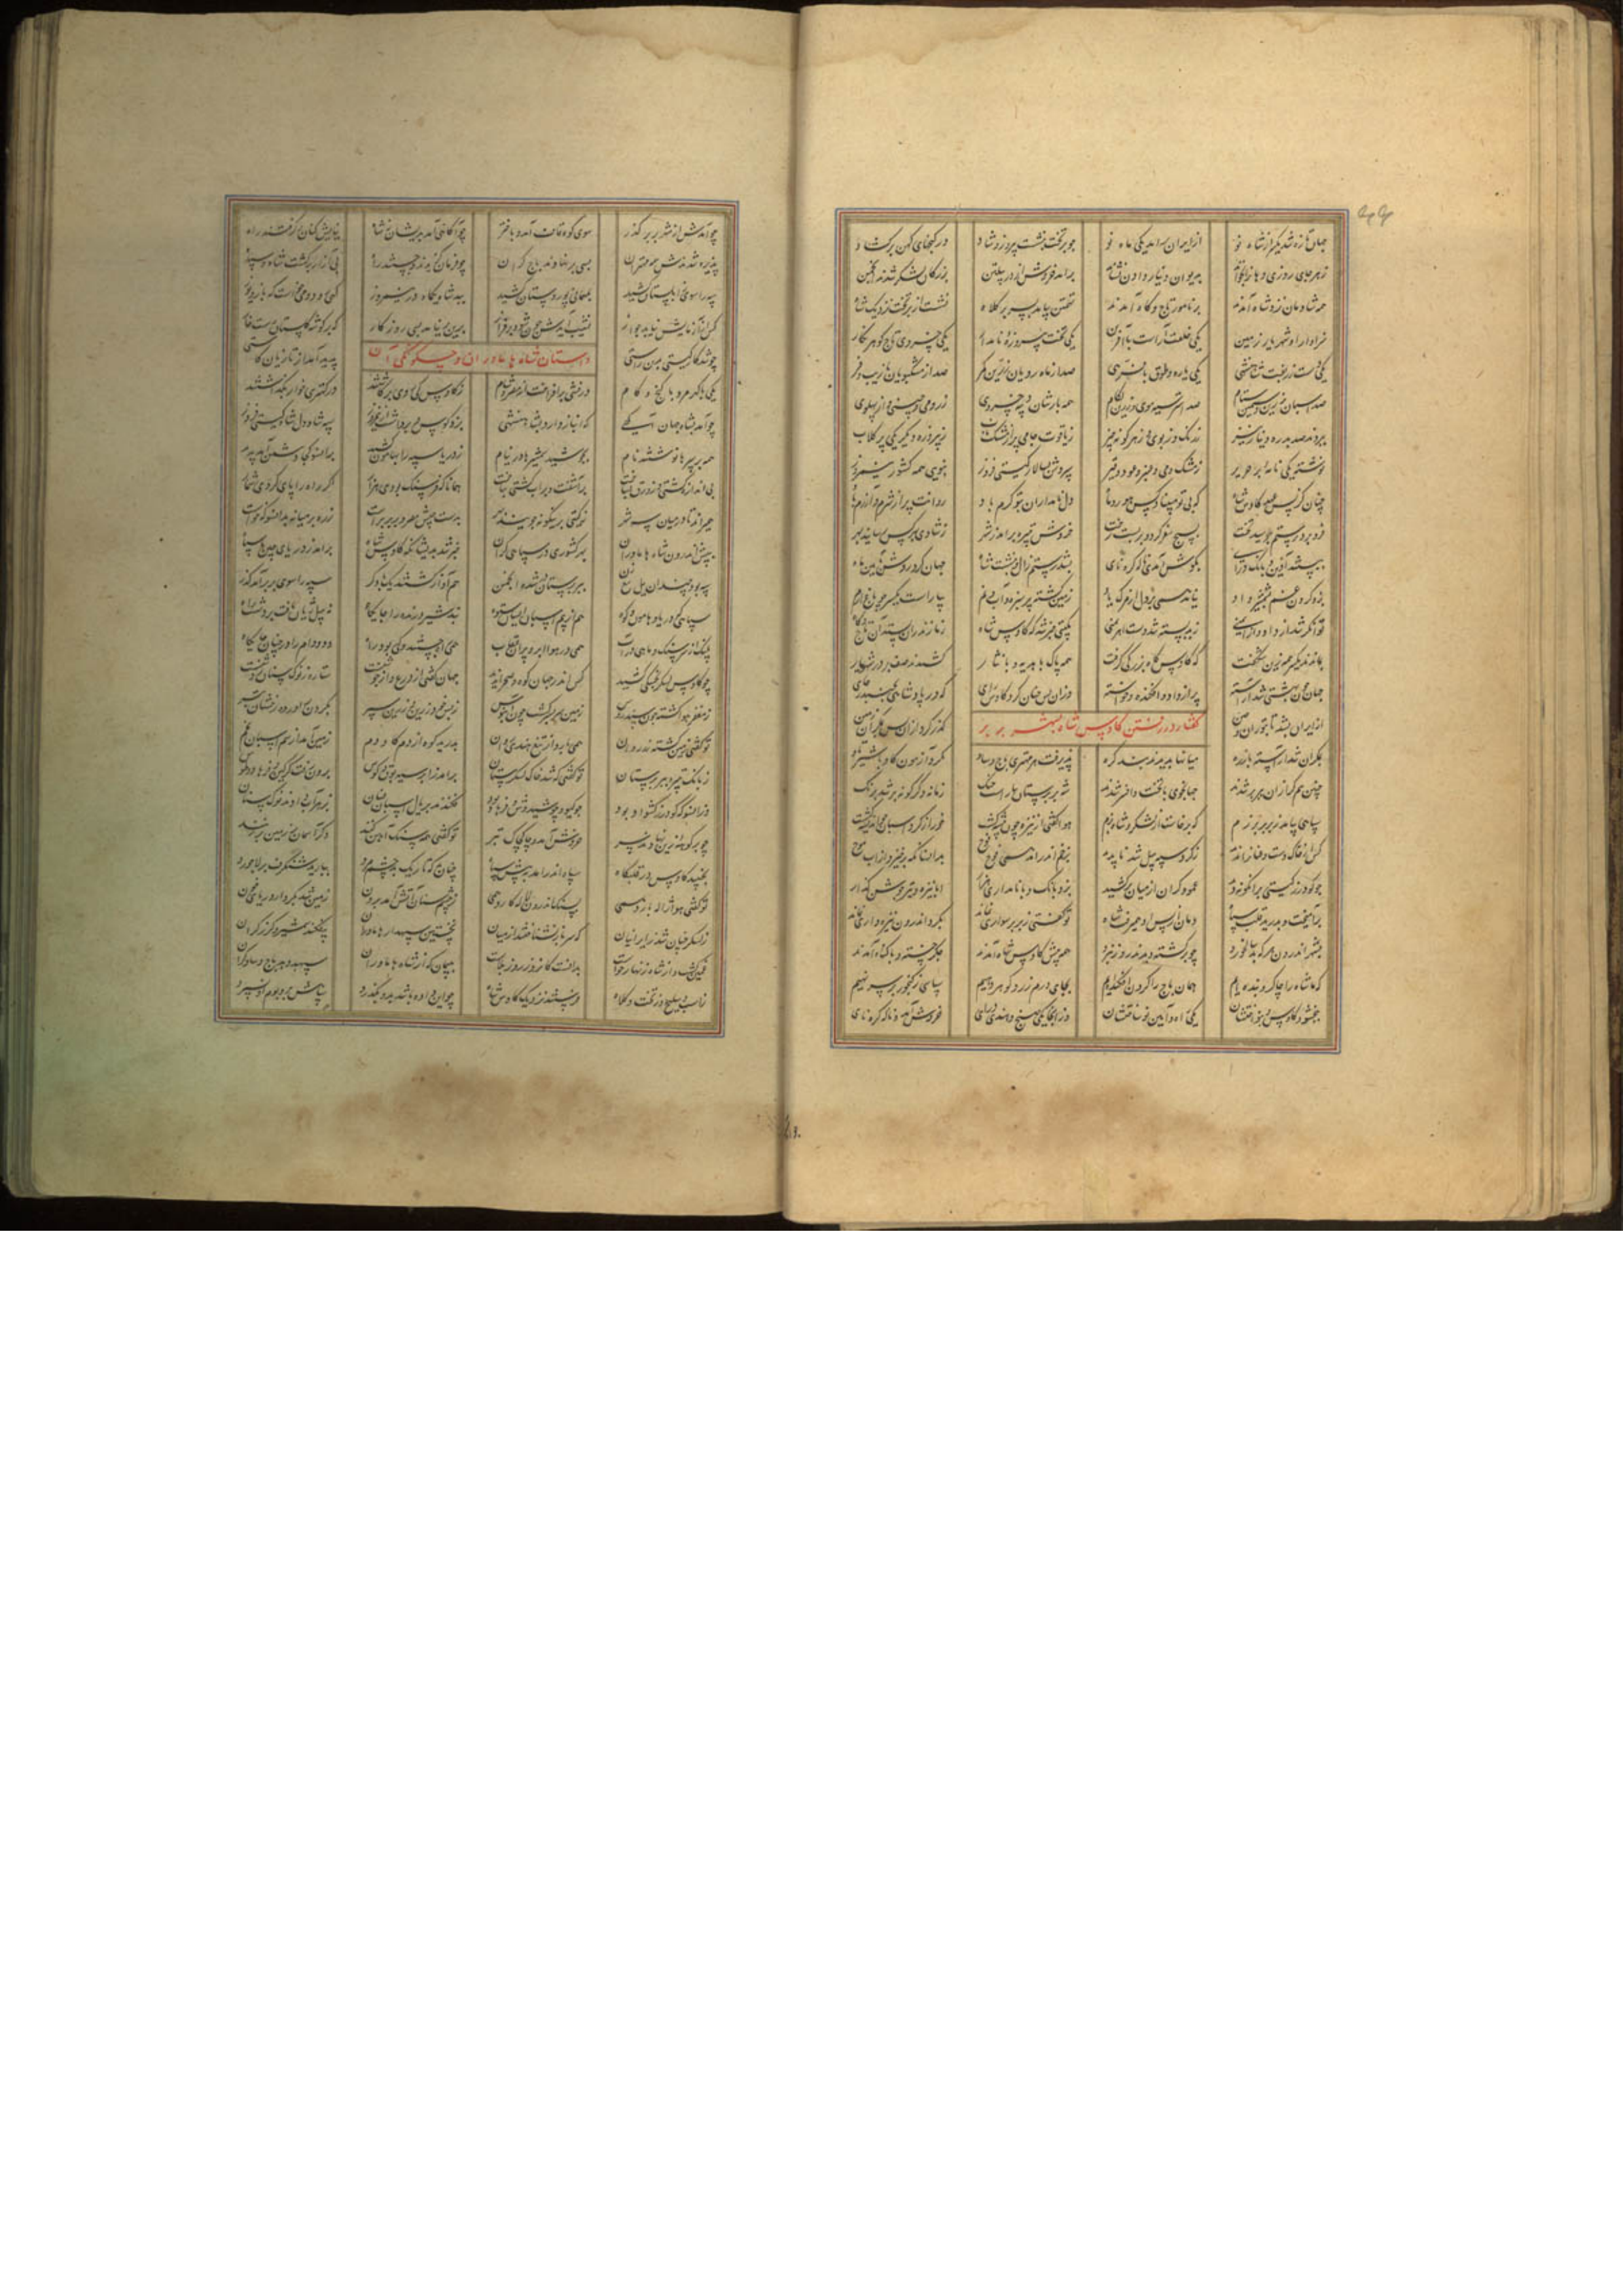 جهان تازه شد یکسر از شاه نو از ایران برآمد یکی ماه نو چو بر تخت بنشست پیروز و شاد در گنجهای کهن برگشاد
ز هر جای روزی دهان را بخواند به دیوان دینار دادن نشاند برآمد خروش از در پیلتن بزرگان لشکر شدند انجمن
همه شادمان نزد شاه آمدند بر نامور تاج و گاه آمدند تهمتن بیامد بسر بر کلاه نشست از بر تخت نزدیک شاه
سزاوار او شهریار زمین یکی خلعت آراست با آفرین یکی تخت پیروزه و نامدار یکی خسروی تاج گوهر نگار
یکی دست زربفت شاهنشهی یکی یاره و طوق با فرهی صد از ماه رویان زرین کمر صد از مشکبویان با زیب و فر
صد اسبان زرین و سیمین ستام صد استر سیه موی و زرین لگام همه بارشان دیبه خسروی ز رومی و چینی و از پهلوی
ببردند صد بدره دینار نیز ز رنگ و ز بوی و ز هر گونه چیز ز یاقوت جامی پر از مشک ناب ز پیروزه دیگر یکی پر گلاب
نوشته یکی نامه ای بر حریر ز مشک و می و عنبر و عود و قیر سپردش بسالار گیتی فروز بنوی همه کشور نیمروز
چنان کز پس عهد کاوس شاه دل نامداران بتو گرم باد روانت پر از شرم و آزرم باد
فرو برد رستم ببوسید تخت بسیج سفر کرد و بربست رخت خروش تبیره برآمد ز شهر ز شادی بهر کس رسانید بهر
بشد رستم زال و بنشست شاه جهان کرد روشن بآیین و راه
بزد گردن غم بشمشیر داد نیامد همی بر دل از مرگ یاد زمین گشت پر سبزه و آب و نم بیاراست گیتی چو باغ ارم
توانگر شد از داد و از ایمنی ز بد بسته شد دست اهرمنی بگیتی خبر شد که کاوس شاه ز مازندران بستد آن تاج و گاه
بماندند یکسر همه زین شگفت که کاوس گاه بزرگی گرفت همه پاک با هدیه و با نثار کشیدند صف بر در شهریار
جهان چون بهشتی شد آراسته پر از داد و آکنده و خواسته وزان پس چنان کرد کاوس رای که در پادشاهی بجنبد ز جای
گفتار در رفتن کاوس شاه بشهر بربر
از ایران بشد تا بتوران و چین گذر کرد از آن پس بمکران زمین
ز مکران شد آراسته تا زره میانها ندیدند بند و گره پذیرفت هر مهتری باج و ساو نکرد آزمون گاو با شیر تاو
چنین هم گرازان ببربر شدند جهانجوی با تخت و افسر شدند شه بربرستان بیاراست جنگ زمانه دگرگونه تر شد برنگ
سپاهی بیامد ز بربر برزم که برخاست از لشکر شاه بزم هوا گفتی از نیزه چون بیشه گشت خور از گرد اسبان
کس از خاک دست و عنان را ندید ز گرد سپه پیل شد ناپدید بزخم اندر آمد همی فوج فوج بدانسان که برخیزد از آب موج
چو گودرز گیتی بر آنگونه دید عمود گران از میان برکشید بزد بانگ و با نامداری هزار ابا نیزه و تیر جوشن گذار
برآمیخت و بدرید قلب سپاه دمان از پس او همیرفت شاه تو گفتی ز بربر سواری نماند بگرد اندرون نیزه داری نماند
بشهر اندرون هر که بد سالخورد چو برگشته دیدند روز نبرد همه پیش کاوس شاه آمدند جگر خسته و با گناه آمدند
که ما شاه را چاکر و بنده ایم همان باج را گردن افکنده ایم بجای درم زر و گوهر دهیم سپاسی ز گنجور بر سر نهیم
ببخشود کاوس و بنواختشان یکی راه و آیین نو ساختشان وز آنجایگه سنج و هندی درای خروش آمد و ناله کره نای
چو آمدش از شهر بربر گذر سوی کوه قاف آمد و باختر چو آگاهی آمد بریشان ز شاه نیایش کنان برگرفتند راه
پذیره شدندش همه مهتران بسی برنهادند باج گران چو فرمان گزیدند بی آزار برگشت شاه و سپاه
سپه را سوی زابلستان کشید بمهمانی پور دستان کشید ببد شاه یکماه در نیمروز گهی رود و می خواست گه باز و یوز
کس از آزمایش نیابد جواز نشیب آیدش چون شود بر فراز برین بر نیامد بسی روزگار که بر گوشه گلستان رست خار
داستان شاه هاماوران و چگونگی آن
چو شد کار گیتی بدین راستی پدید آمد از تازیان کاستی
یکی با گهر مرد با گنج و کام درفشی برافراخت از مصر و شام ز کاوس کی روی برگاشتند در کهتری خوار بگذاشتند
چو آمد بشاه جهان آگهی که انباز دارد بشاهنشهی بزد کوس و برداشت از نیمروز سپه شاد دل شاه گیتی فروز
همه بر سپرها نوشتند نام بجوشید شمشیرها در نیام ز دریا سپه را بهامون کشید بدانسو کجا دشمن آمد پدید
بی اندازه کشتی و زورق بساخت برآشفت و بر آب کشتی بتاخت همانا که فرسنگ بودی هزار اگر راه را پای کردی شمار
همیراند تا در میان سه شهر ز گیتی برینگونه جوینده بهر بدست چپش مصر و بربر براست زره بر میانه بدانسو که خواست
بپیش اندرون شاه هاماوران بهر کشوری در سپاهی گران خبر شد بدیشان که کاوس شاه برآمد ز دریای چین با سپاه
ببربرستان شد انجمن هم آواز گشتند یک با دگر سپه را سوی بربر آمد گذر
سپاهی که دریا و هامون و کوه هم از سم اسبان ایشان ستوه نبد شیر درنده را جایگاه نه پیل ژیان یافت بر دشت راه
پلنگ از بر سنگ و ماهی در آب همی در هوا ابر و پران عقاب همی راه جستند و کی بود راه دد و دام را در چنان جایگاه
چو کاوس لشکر بخشکی کشید کس اندر جهان کوه و صحرا ندید جهان گفتی از درع و از جوشنست ستاره ز نوک سنان روشنست
ز مغفر هوا گشته چون سندروس زمین سربسر گشت چون آبنوس ز بس خود زرین و زرین سپر بگردن برآورده رخشان تبر
تو گفتی زمین گشته زر روان همی بارد از تیغ هندی روان بدرید کوه از دم گاودم زمین آمد از سم اسبان بخم
ز بانگ تبیره ببربرستان تو گفتی که شد خاک لشکرستان برآمد ز ایران سپه بوق و کوس برون رفت گرگین و فرهاد و طوس
وزانسو که گودرز کشواد بود چو گیو و چو شیدوش و فرهاد بود فکندند بر یال اسبان عنان بزهر آب دادند نوک سنان
چو بر کوهه زین نهادند سر خروش آمد و چاکچاک تبر تو گفتی همه سنگ آهن کنند وگر آسمان بر زمین برزنند
بجنبید کاوس در قلبگاه سپاه اندر آمد بپیش سپاه چنان گشت تاریک چشم مرد ببارید شنگرف بر لاجورد
تو گفتی هوا ژاله بارد همی بسنگ اندرون لاله کارد همی ز چشم سنان آتش آمد برون زمین شد بکردار دریای خون
ز لشکر چنان شد ز ایرانیان که سر باز نشناختند از میان نخستین سپهدار هاماوران بیفکند شمشیر و گرز گران
غمین گشت و از شاه زنهار خواست بدانست کان روز روز بلاست بپیمان که از شاه هاماوران سپهبد دهد باج و ساو گران
ز اسب و سلیح و ز تخت و کلاه فرستد بنزدیک کاوس شاه چو این داده باشد بدو بگذرد سپاهش بر و بوم او نسپرد